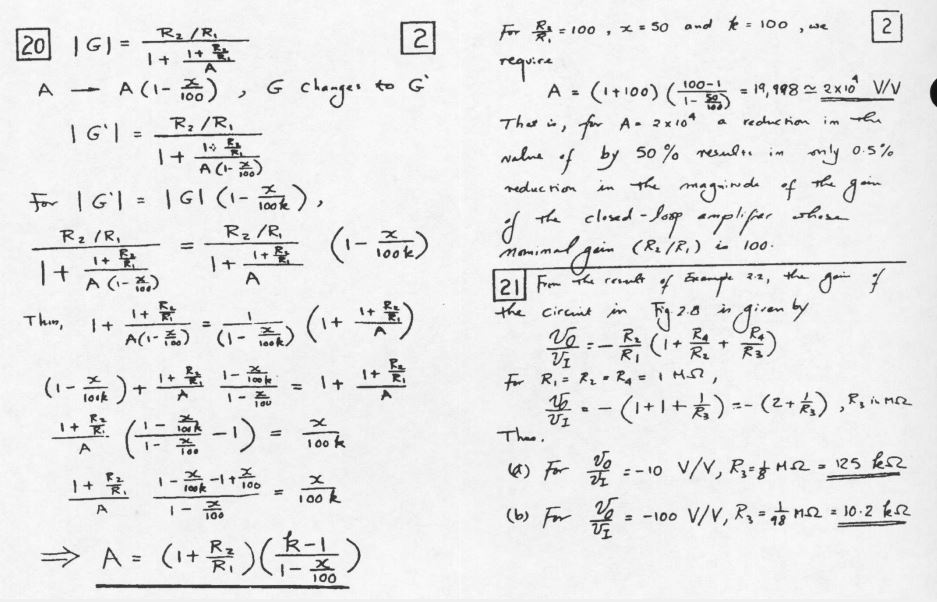 20 |G| = (R₂/R₁) / (1 + (1 + R₂/R₁)/A) 2
A → A(1 - x/100) , G changes to G'
|G'| = (R₂/R₁) / (1 + (1 + R₂/R₁)/(A(1 - x/100)))
For |G'| = |G| (1 - x/100k),
(R₂/R₁) / (1 + (1 + R₂/R₁)/(A(1 - x/100))) = (R₂/R₁) / (1 + (1 + R₂/R₁)/A) (1 - x/100k)
Thus, 1 + (1 + R₂/R₁)/(A(1 - x/100)) = 1/(1 - x/100k) (1 + (1 + R₂/R₁)/A)
(1 - x/100k) + (1 + R₂/R₁)/A (1 - x/100k)/(1 - x/100) = 1 + (1 + R₂/R₁)/A
(1 + R₂/R₁)/A ((1 - x/100k)/(1 - x/100) - 1) = x/100k
(1 + R₂/R₁)/A (1 - x/100k - 1 + x/100)/(1 - x/100) = x/100k
⇒ A = (1 + R₂/R₁)((k-1)/(1 - x/100))
For R₂/R₁ = 100 , x = 50 and k = 100 , we 2
require
A = (1+100) ((100-1)/(1 - 50/100)) = 19,998 ≃ 2x10⁴ V/V
That is, for A = 2x10⁴ a reduction in the
value of by 50% results in only 0.5%
reduction in the magnitude of the gain
of the closed-loop amplifier whose
nominal gain (R₂/R₁) is 100.
21 From the result of Example 2.2, the gain of
the circuit in Fig 2.8 is given by
v_O/v_I = - R₂/R₁ (1 + R₄/R₂ + R₄/R₃)
For R₁ = R₂ = R₄ = 1 MΩ ,
v_O/v_I = - (1+1+ 1/R₃) = - (2+ 1/R₃) , R₃ in MΩ
Thus.
(a) For v_O/v_I = -10 V/V, R₃ = 1/8 MΩ = 125 kΩ
(b) For v_O/v_I = -100 V/V, R₃ = 1/98 MΩ = 10.2 kΩ